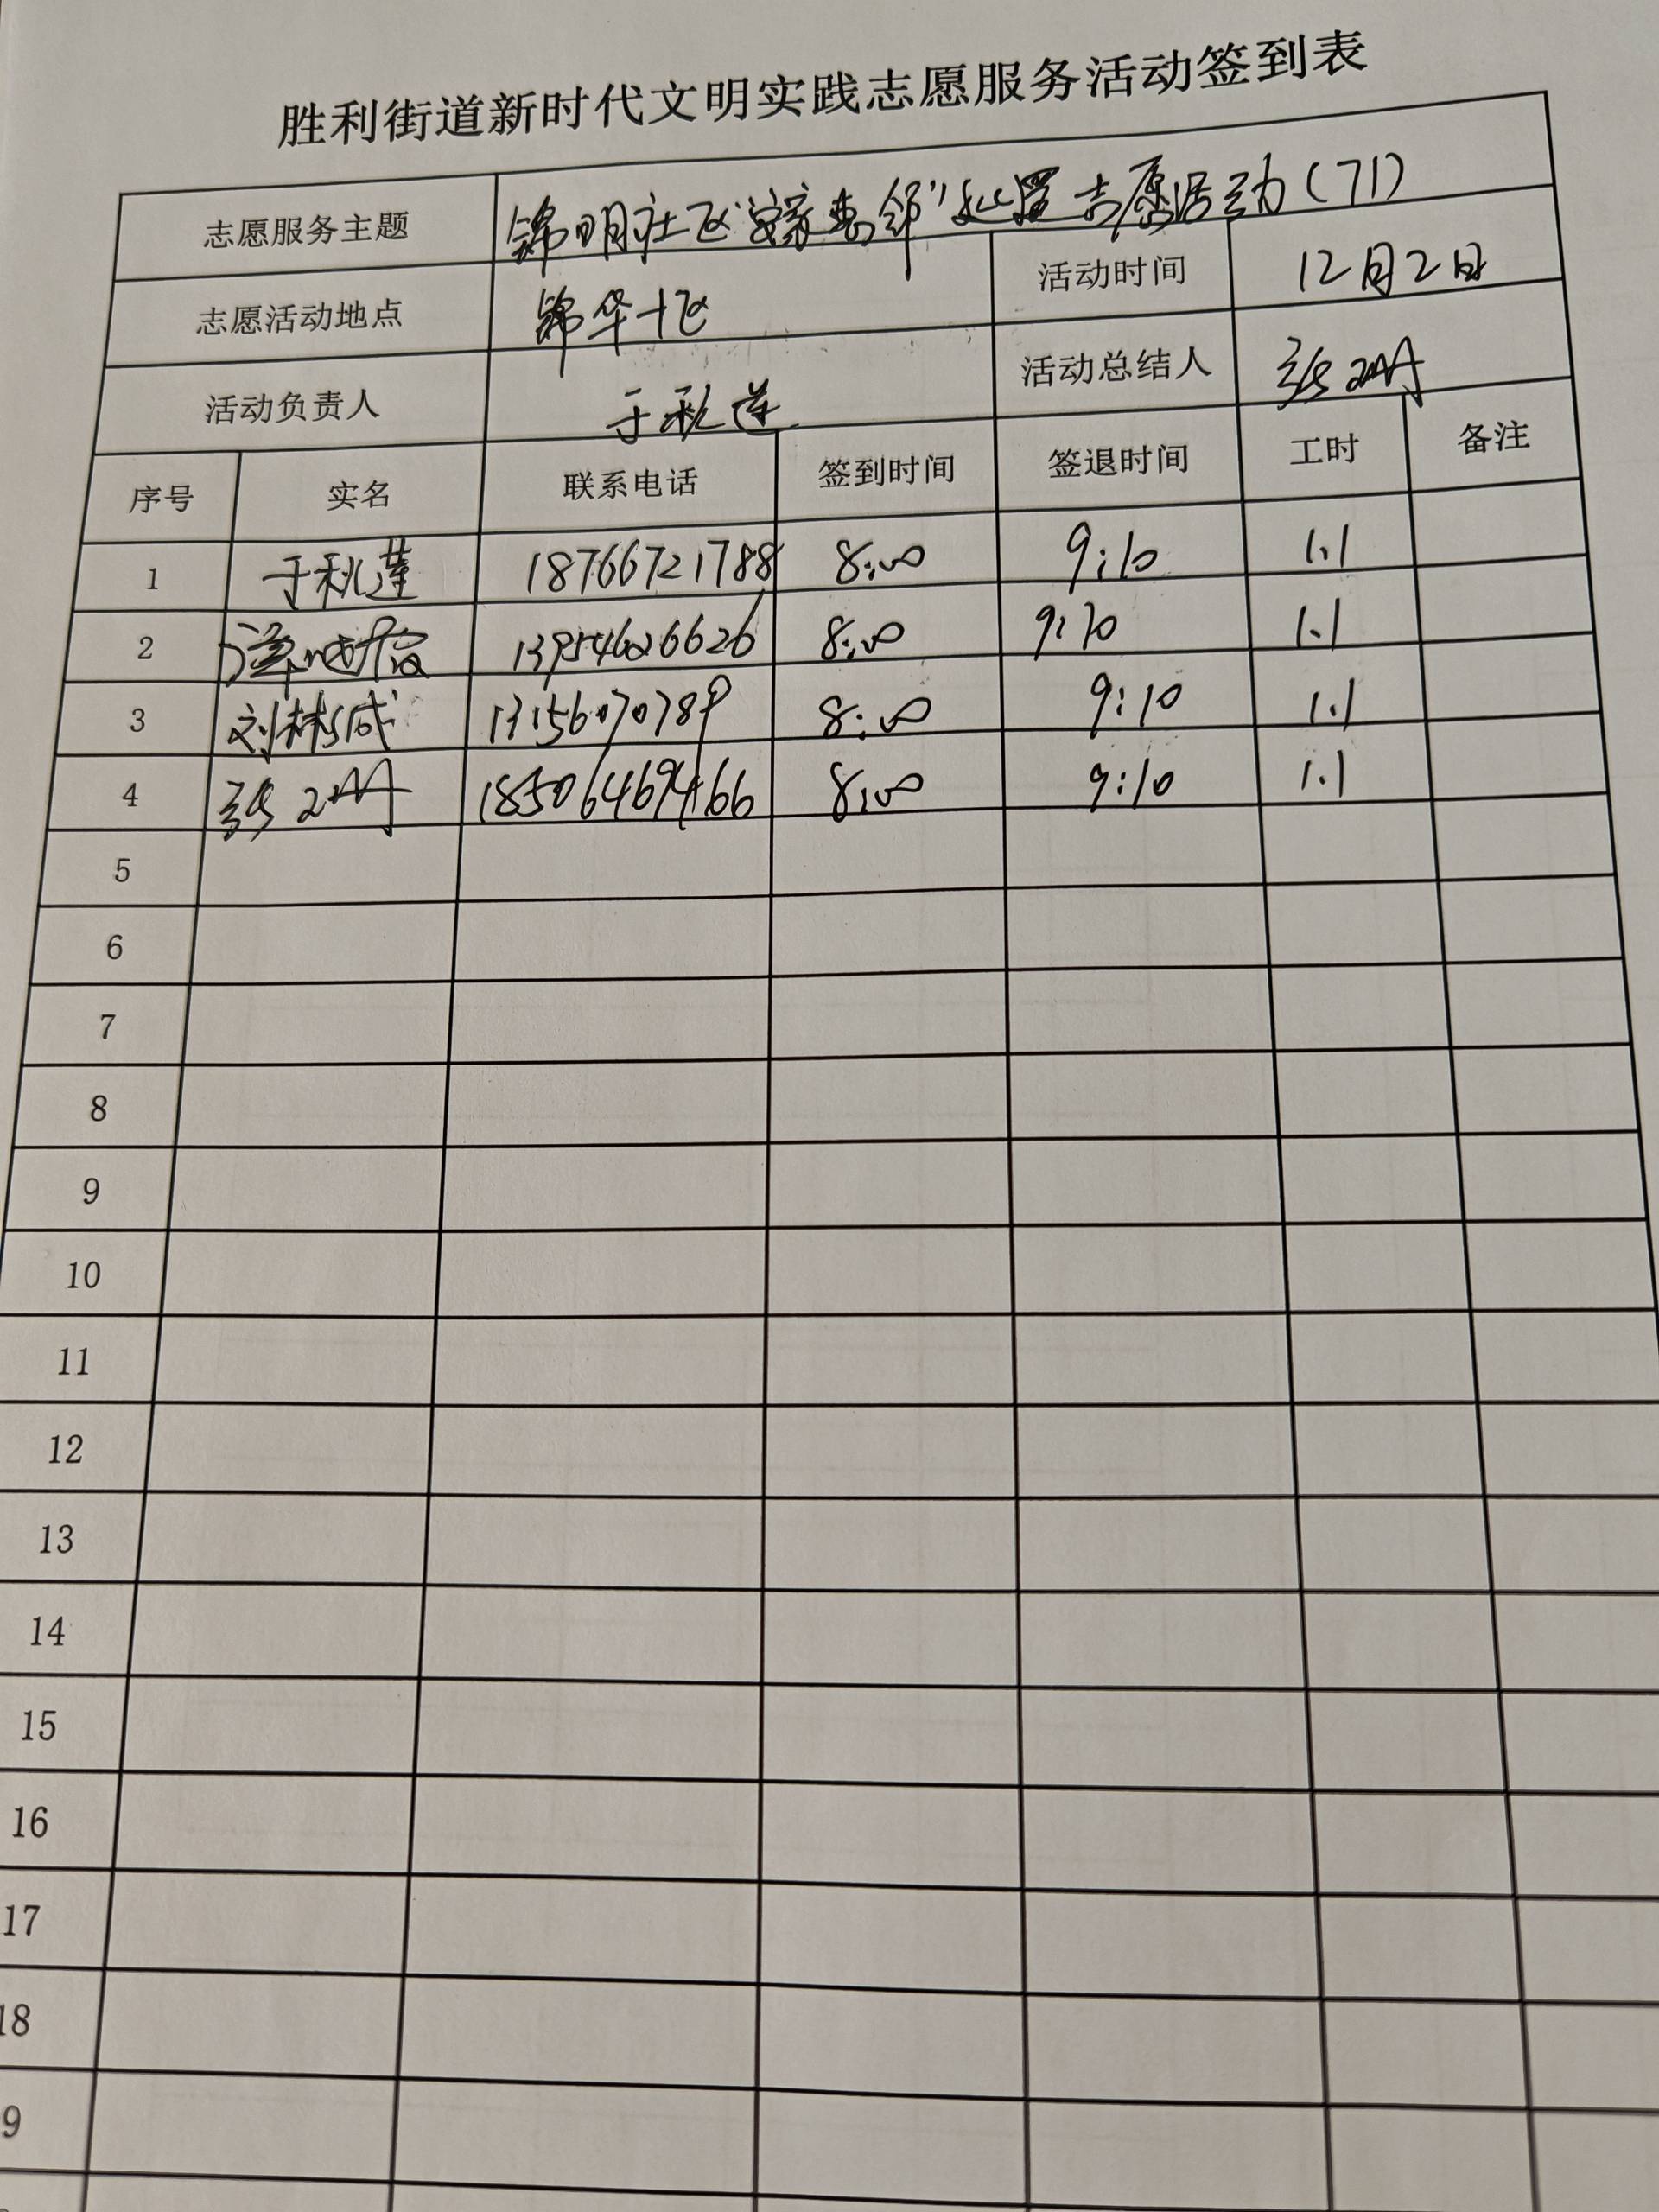 胜利街道新时代文明实践志愿服务活动签到表
志愿服务主题 锦明社区"家惠邻" 志愿活动(71)
志愿活动地点 锦华一区 活动时间 12月2日
活动负责人 于秋莲 活动总结人 张
序号 实名 联系电话 签到时间 签退时间 工时 备注
1 于秋莲 18766721788 8:00 9:10 1.1
2 13954626626 8:00 9:10 1.1
3 刘林成 13156070789 8:00 9:10 1.1
4 张 18506469466 8:00 9:10 1.1
5
6
7
8
9
10
11
12
13
14
15
16
17
18
9